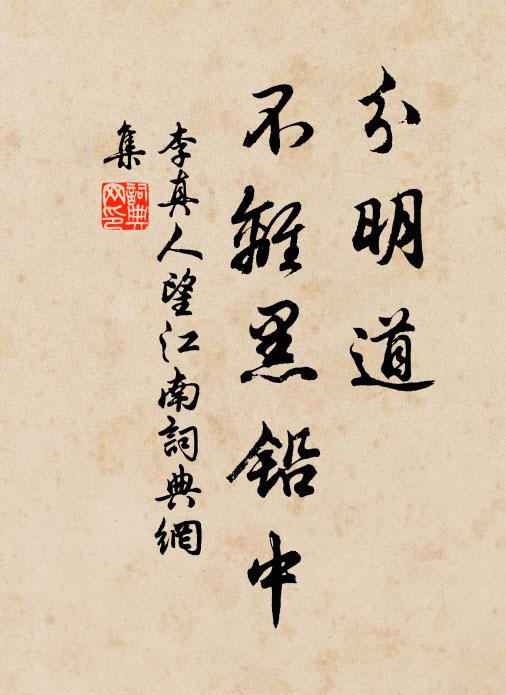 分明道
不離黑鉛中
李真人望江南詞典網
集
詞典网印